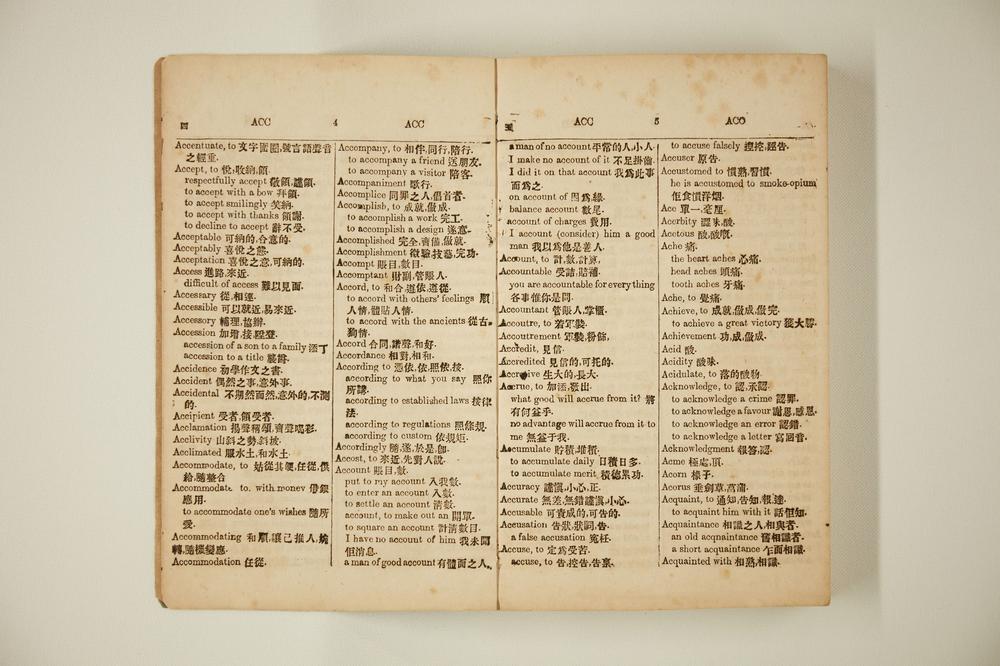 四 ACC 4 ACC
Accentuate, to
之輕重.
Accept, to 悅,收納,領.
respectfully accept 敬領,謹領.
to accept with a bow 拜領.
to accept smilingly 笑納.
to accept with thanks 領謝.
to decline to accept 辭不受.
Acceptable 可納的,合意的.
Acceptably 喜悅之態.
Acceptation 喜悅之意,可納的.
Access 進路,來近.
difficult of access 難以見面.
Accessary 從,相連.
Accessible 可以就近,易來近.
Accessory 輔理,協辦.
Accession 加增,接,陞登.
accession of a son to a family 添丁
accession to a title 襲爵.
Accidence 初學作文之書.
Accident 偶然之事,意外事.
Accidental 不期然而然,意外的,不測
的.
Accipient 受者,領受者.
Acclamation 揚聲稱頌,齊聲喝彩.
Acclivity 山斜之勢,斜坡.
Acclimated 服水土,和水土.
Accommodate, to
給,隨整合
Accommodate to. with money 借銀
應用.
to accommodate one's wishes 隨所
愛.
Accommodating 和順,讓己推人,
轉,隨機變應.
Accommodation 任從.
Accompany, to 相伴,同行,陪行.
to accompany a friend 送朋友.
to accompany a visitor 陪客.
Accompaniment 跟行.
Accomplice 同罪之人,倡首者.
Accomplish, to 成就,做成.
to accomplish a work 完工.
to accomplish a design 遂意.
Accomplished 完全,齊備,做就.
Accomplishment 徵驗,技藝,完功.
Accompt 賬目,數目.
Accomptant 財副,管賬人.
Accord, to 和合,遵依,遵從.
to accord with others' feelings 順
人情,體貼人情.
to accord with the ancients 從古,
Accord 合同,諧聲,和好.
Accordance 相對,相和.
According to 憑依,依,照依,按.
according to what you say 照你
所講.
according to established laws 按律
法.
according to regulations 照條規.
according to custom 依規矩.
Accordingly 隨,遂,於是,即.
Accost, to 來近,先對人說.
Account 賬目,數.
put to my account 入我數.
to enter an account 入數.
to settle an account 清數.
account, to make out an 開單.
to square an account 計清數目.
I have no account of him 我未聞
佢消息.
a man of good account 有體面之人.
ACC 5 ACO
a man of no account 平常的人,小人.
I make no account of it 不足掛齒.
I did it on that account 我為此事
而為之.
on account of 因為,緣.
balance account 數尾.
account of charges 費用.
I account (consider) him a good
man 我以為他是善人.
Account, to 計,數,計算.
Accountable 受詰,賠補.
you are accountable for everything
各事惟你是問.
Accountant 管賬人,掌櫃.
Accoutre, to 著軍裝.
Accoutrement 軍裝,粉飾.
Accredit, 見信.
Accredited 見信的,可托的.
Accretive 生大的,長大.
Accrue, to 加添,發出.
what good will accrue from it? 將
有何益乎.
no advantage will accrue from it to
me 無益于我.
Accumulate 貯積,堆積.
to accumulate daily 日積日多.
to accumulate merit, 積德累功.
Accuracy 謹慎,小心,正.
Accurate 無差,無錯,謹慎,小心.
Accusable 可責成的,可告的.
Accusation 告狀,狀詞,告.
a false accusation 冤枉.
Accuse, to 定為受苦.
accuse, to 告,控告,告稟.
to accuse falsely 捏控,誣告.
Accuser 原告.
Accustomed to 慣熟,習慣.
he is accustomed to smoke-opium
佢食慣洋烟.
Ace 單一,毫厘.
Acerbity 澀味,酸.
Acetous 酸,酸嘅.
Ache 痛.
the heart aches 心痛.
head aches 頭痛.
tooth aches 牙痛.
Ache, to 覺痛.
Achieve, to 成就,做成,做完.
to achieve a great victory 獲大勝.
Achievement 功,成,做成.
Acid 酸.
Acidity 酸味.
Acidulate, to 落的酸物.
Acknowledge, to 認,承認.
to acknowledge a crime 認罪.
to acknowledge a favour 謝恩,感恩.
to acknowledge an error 認錯.
to acknowledge a letter 寫回音.
Acknowledgment 報答,認.
Acme 極處,頂.
Acorn 橡子.
Acorus 垂劍草,菖蒲.
Acquaint, to 通知,告知,報,達.
to acquaint him with it 話佢知.
Acquaintance 相識之人,相與者.
an old acquaintance 舊相識者.
a short acquaintance 乍面相識.
Acquainted with 和熟,相識.